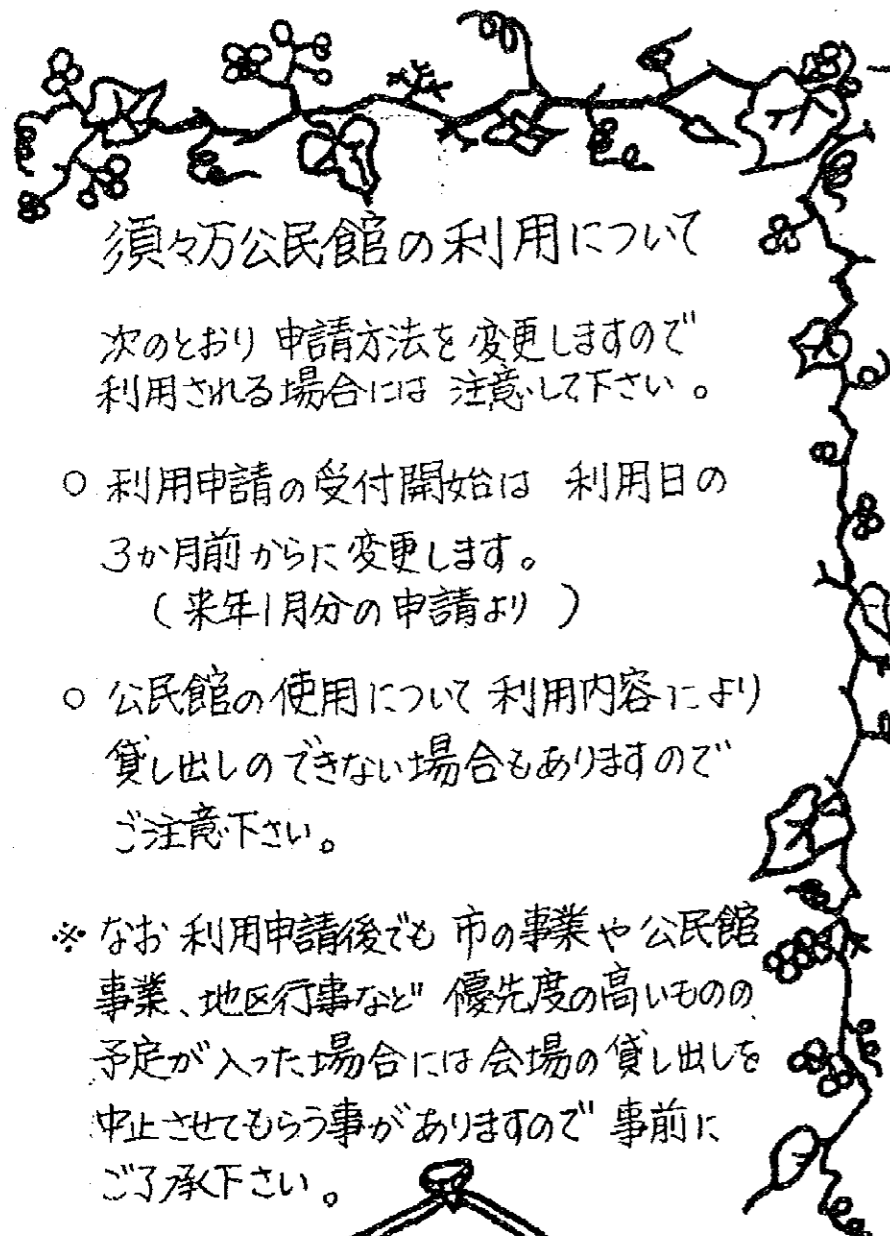 須々万公民館の利用について
次のとおり 申請方法を変更しますので
利用される場合には 注意して下さい。
○ 利用申請の受付開始は 利用日の
3か月前からに変更します。
(来年1月分の申請より )
○ 公民館の使用について 利用内容により
貸し出しのできない場合もありますので
ご注意下さい。
※ なお 利用申請後でも 市の事業や公民館
事業、地区行事など 優先度の高いものの
予定が入った場合には会場の貸し出しを
中止させてもらう事がありますので 事前に
ご了承下さい。